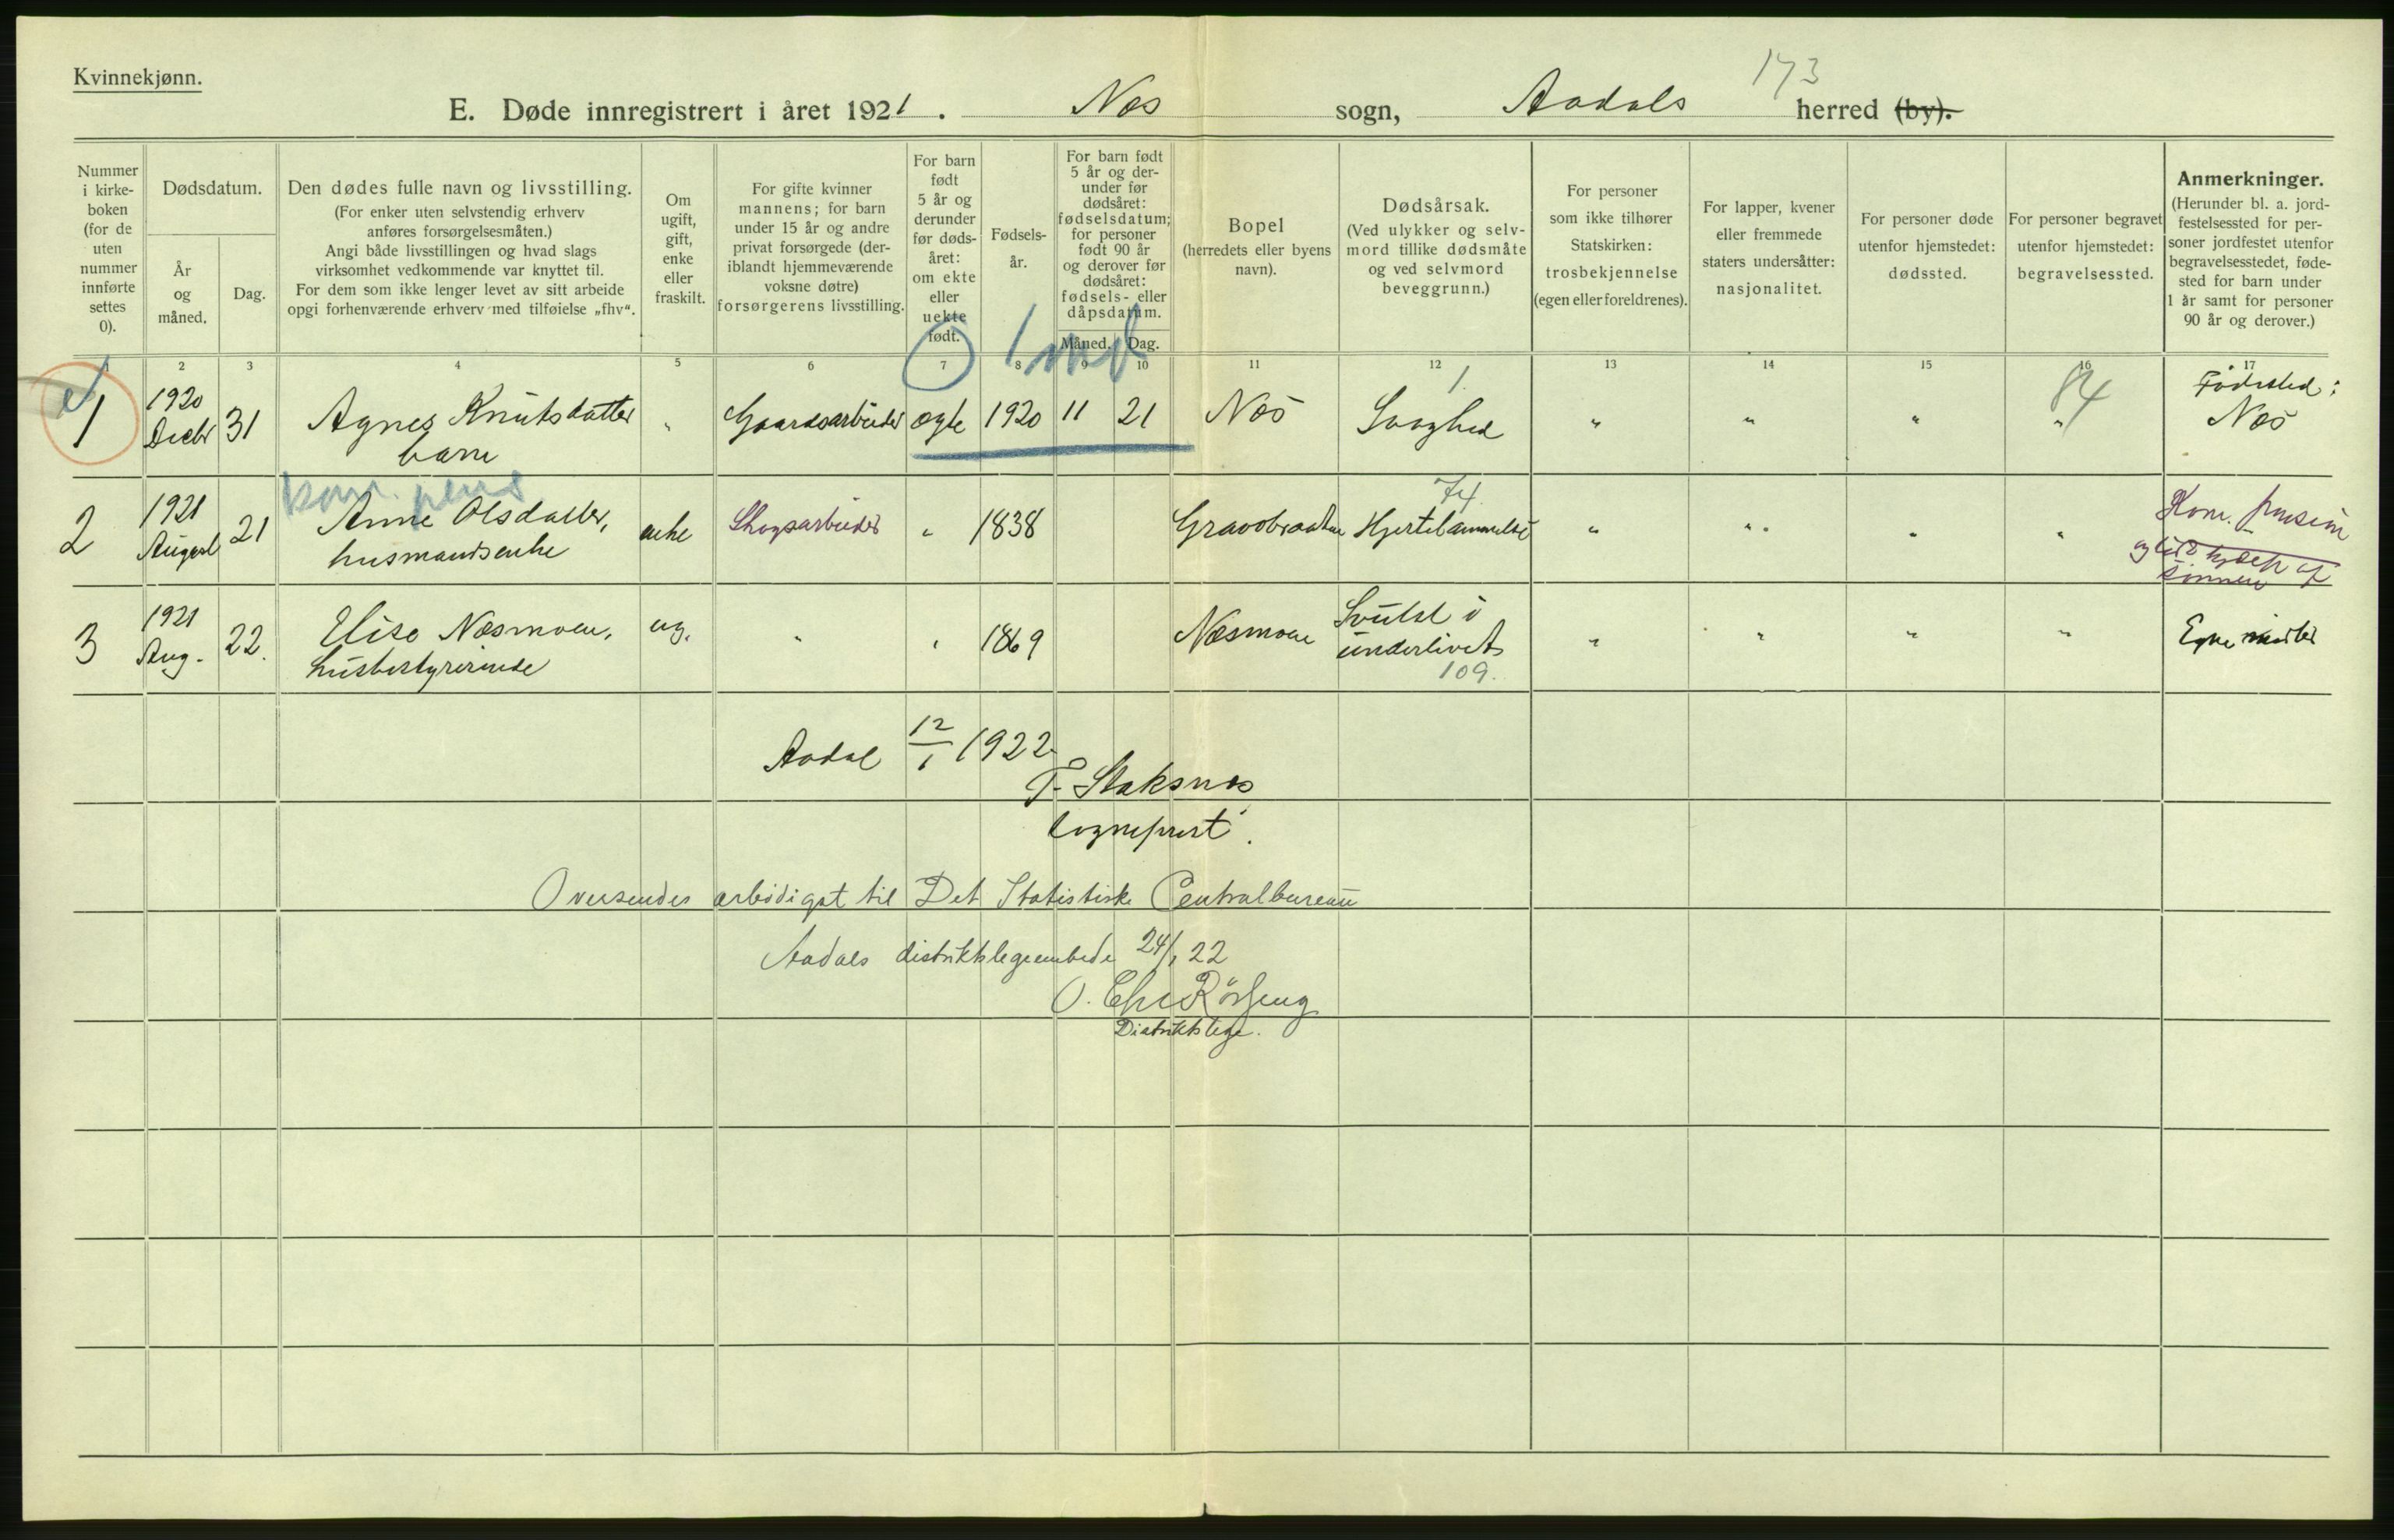 Kvinnekjønn.
173
E. Døde innregistrert i året 1921. Næs sogn, Aadals herred (by).
Nummer i kirkeboken (for de uten nummer innførte settes 0).
Dødsdatum.
År og måned.
Dag.
Den dødes fulle navn og livsstilling.
(For enker uten selvstendig erhverv anføres forsørgelsesmåten.)
Angi både livsstillingen og hvad slags virksomhet vedkommende var knyttet til.
For dem som ikke lenger levet av sitt arbeide opgi forhenværende erhverv med tilføielse „fhv“.
Om ugift, gift, enke eller fraskilt.
For gifte kvinner mannens; for barn under 15 år og andre privat forsørgede (deriblandt hjemmeværende voksne døtre) forsørgerens livsstilling.
For barn født 5 år og derunder før dødsåret: om ekte eller uekte født.
Fødselsår.
For barn født 5 år og derunder før dødsåret: fødselsdatum; for personer født 90 år og derover før dødsåret: fødsels- eller dåpsdatum.
Måned. Dag.
Bopel (herredets eller byens navn).
Dødsårsak.
(Ved ulykker og selvmord tillike dødsmåte og ved selvmord beveggrunn.)
For personer som ikke tilhører Statskirken: trosbekjennelse (egen eller foreldrenes).
For lapper, kvener eller fremmede staters undersåtter: nasjonalitet.
For personer døde utenfor hjemstedet: dødssted.
For personer begravet utenfor hjemstedet: begravelsessted.
Anmerkninger.
(Herunder bl. a. jordfestelsessted for personer jordfestet utenfor begravelsesstedet, fødested for barn under 1 år samt for personer 90 år og derover.)
1 2 3 4 5 6 7 8 9 10 11 12 13 14 15 16 17
1 md
1 1920 Decbr 31 Agnes Knutsdatter barn " Gaardsarbeider ægte 1920 11 21 Næs 1 Svaghed " " " " 84 Fødested: Næs
kom. pens
2 1921 August 21 Anne Olsdatter, husmandsenke enke Skogsarbeider " 1838 Gravobraaten 74. Hjertelammelse " " " " Kom. pension og lidt hjælp af sønnen
3 1921 Aug. 22. Elise Næsmoen, husbestyrerinde ug. " " 1869 Næsmoen Svulst i underlivet 109. " " " " Egne midler
Aadal 12/1 1922
T. Staksnæs
sogneprest.
Oversendes ærbødigst til Det Statistiske Centralbureau
Aadals distriktslegeembede 24/1 22
Distriktslege.